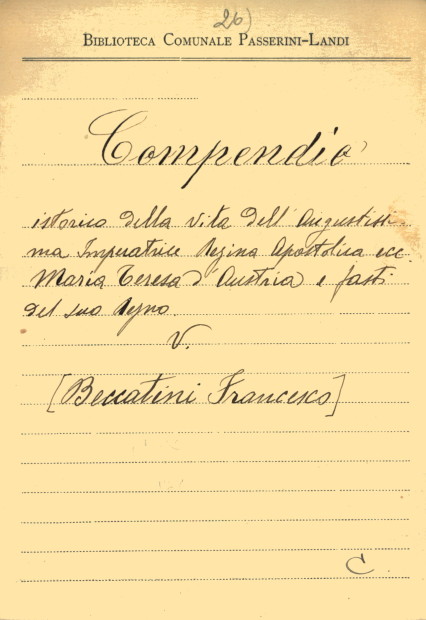 26)
BIBLIOTECA COMUNALE PASSERINI-LANDI
Compendio
istorico della vita dell'Augustissi-
ma Imperatrice Regina Apostolica ecc.
Maria Teresa d'Austria e fasti
del suo Regno.
V.
[Beccatini Francesco]
C